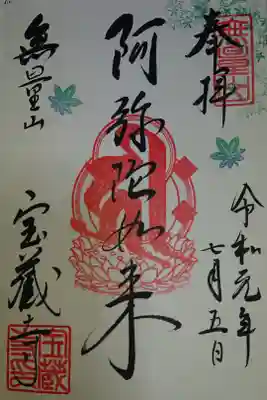 奉拝
令和元年
七月五日
阿弥陀如来
無量山
宝蔵寺